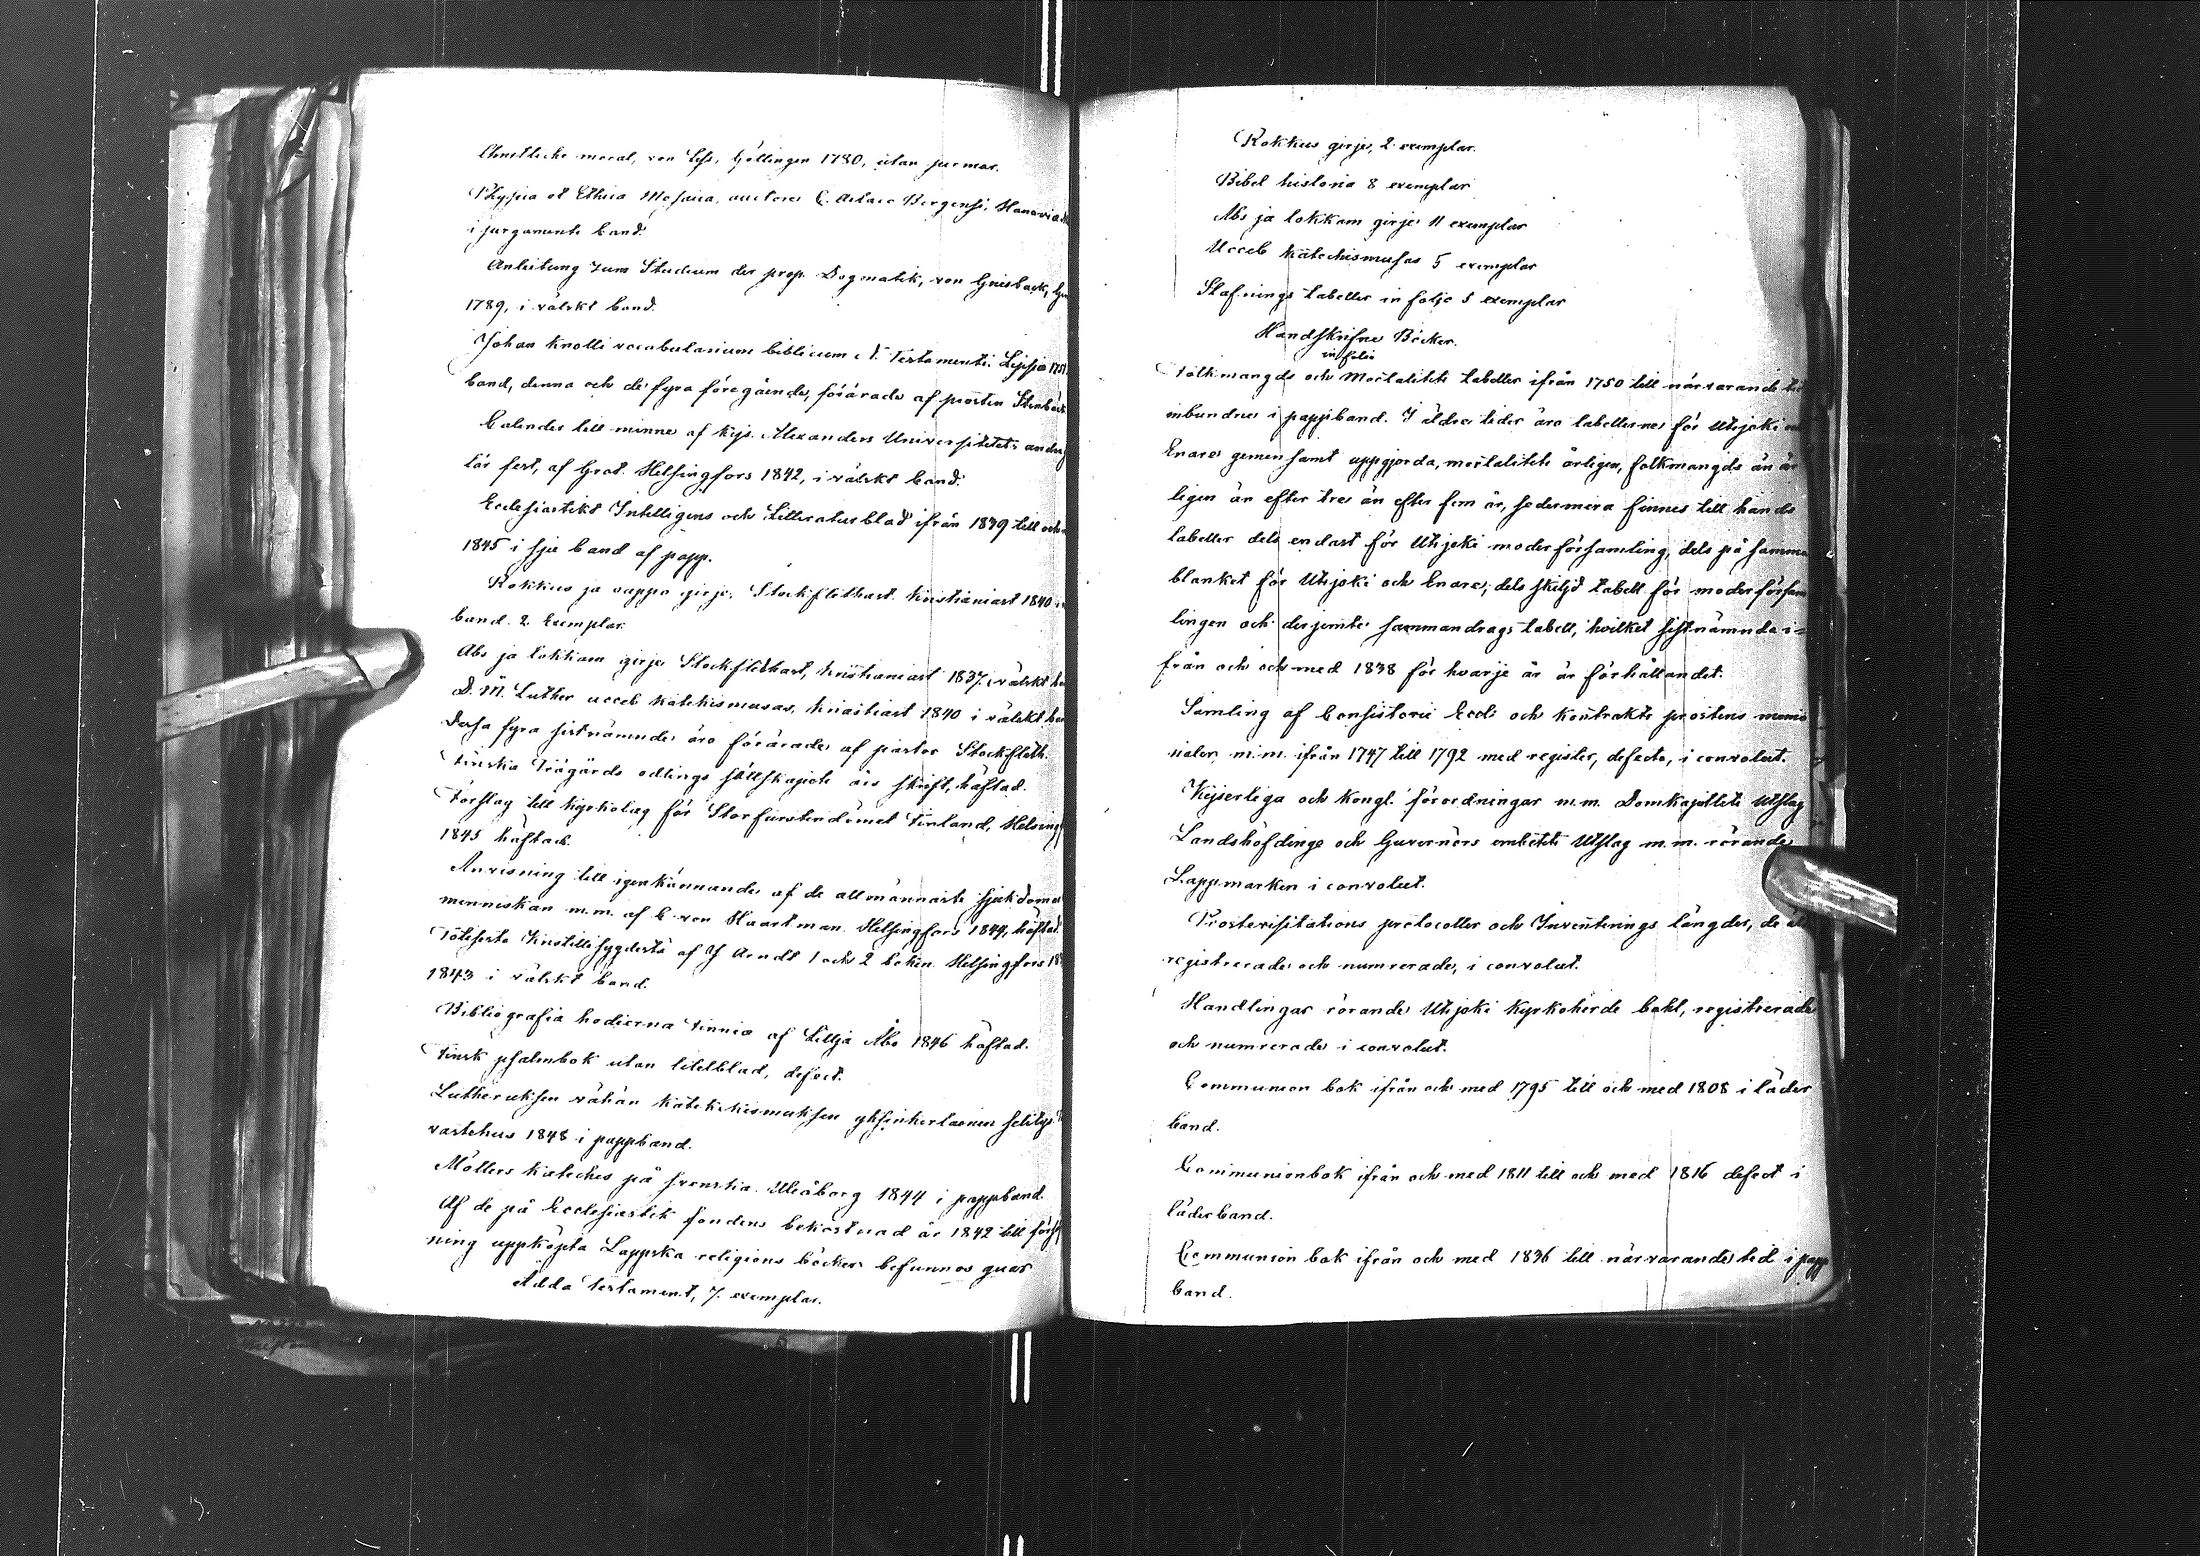 Christliche moral, von Less, Göttingen 1780, utan permar.
Physica et Ethica Mosaica, auctore C. Aslaco Bergensi, Hanovia
i pergaments band.
Anleitung zum Studium der pop. Dogmatik, von Griesback,
1789, i välskt band.
Johan Knolli vocabularium biblicum N. Testamenti. Lipsia 1751
band, denna och de fyra föregående, förärade af prosten Stenbäck
Calender till minne af Kejs. Alexanders Universitetets andra
lär fest, af Grot. Helsingfors 1842, i välskt band.
Ecclesiastikt Intelligens och Litteraturblad ifrån 1839 till och
1845 i sju band af papp.
Rokkus ja oappo girje. Stockflethast. Kristianiast 1840
band. 2. Exemplar.
Abs ja lokkam girje Stockflethast, Kristianiast 1837. i välskt
D. M. Luther ucceb katekismusas, Kriastiast 1840 i välskt
Dessa fyra sistnämnde äro förärade af pastor Stockfleth.
Finska Trägårds odlings sällskapets års skrift, häftad.
Förslag till Kyrkolag för Storfurstendömet Finland, Helsingf
1845 häftad.
Anvisning till igenkännande af de allmännaste sjukdomar
menniskan m.m. af C. von Haartman. Helsingfors 1844, häftad.
Totisesta Kristillisyydestä af J Arndt 1 och 2 boken. Helsingfors
1843 i välskt band.
Bibliografia hodierna Fennia af Lillja Åbo 1846 häftad.
Finsk psalmbok utan titelblad, defect.
Lutheruksen vähän Katekismuksen yksinkertainen selitys
vastehus 1848 i pappband.
Möllers Kateches på svenska. Uleåborg 1844 i pappband.
Af de på Ecclesiastik fondens bekostnad år 1842 till förs
ning uppköpta Lappska religions böcker befunnos qvar
Adda Testament, 7. exemplar.
Rokkus girje, 2 exemplar.
Bibel historia 8 exemplar
Abs ja lokkam girje 11 exemplar
Ucceb Katechismusas 5 exemplar
Stafnings tabeller in folio 5 exemplar
Handskrifne Böcker.
in folio
Folkmängds och Mortalitets tabeller ifrån 1750 till närvarande tid
inbundne i pappband. I äldre tider äro tabellerne för Utsjoki
Enare gemensamt uppgjorda, mortalitets årligen, folkmängds än år
ligen än efter tre än efter fem år, sedermera finnes till hands
tabeller dels endast för Utsjoki moderförsamling, dels på samma
blanket för Utsjoki och Enare, dels skeljd tabell för moderförsam
lingen och derjemte sammandrags tabell, hvilket sistnämnda i-
från och och med 1838 för hvarje år är förhållandet.
Samling af Consistorii Eccli och kontrakts prostens memo
rialer m.m. ifrån 1747 till 1792 med register, defecta, i convolut.
Kejserliga och Kongl. förordningar m.m. Domkapitlets Utslag
Landshöfdinge och Guvernörs embetets Utslag m.m. rörande
Lappmarken i convolut.
Prostevisitations protocoller och Inventerings längder, de äl
registrerade och numrerade, i convolut.
Handlingar rörande Utsjoki Kyrkoherde bohl, registrerade
och numrerade i convolut.
Communion bok ifrån och med 1795 till och med 1808 i läder
band.
Communionbok ifrån och med 1811 till och med 1816 defect i
läderband.
Communion bok ifrån och med 1836 till närvarande tid i papp
band.